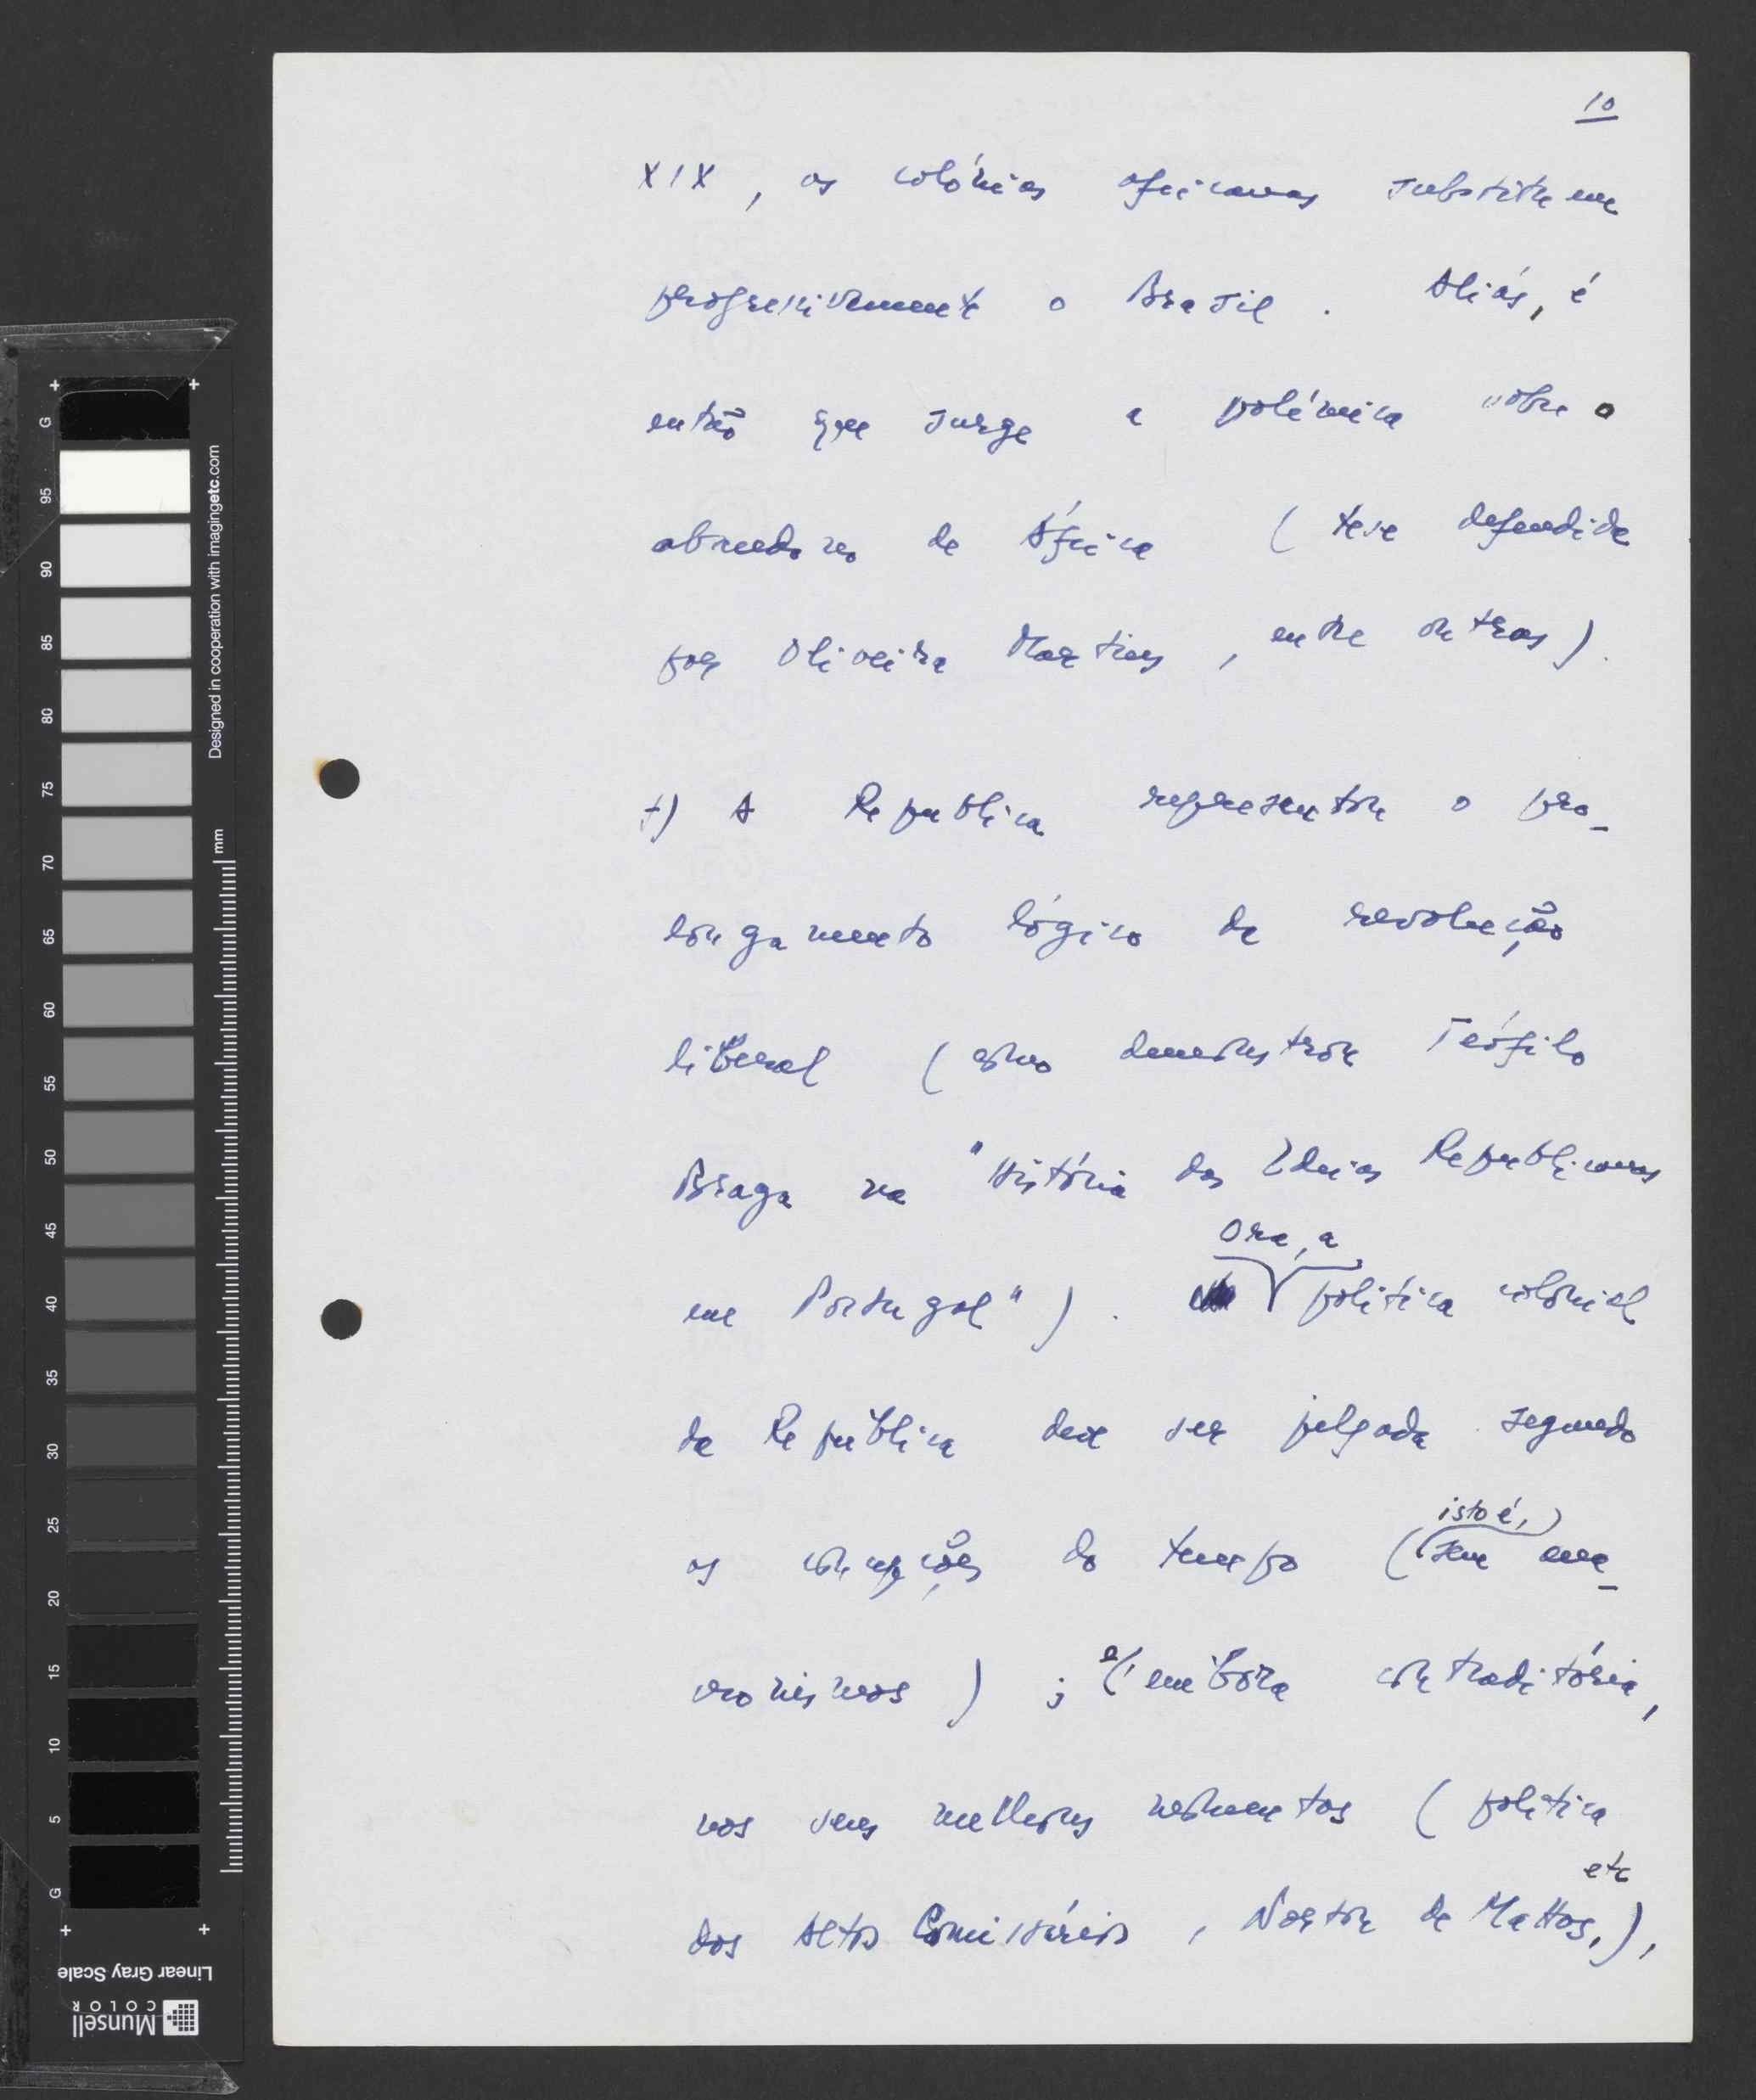 10
XIX, as colónias africanas substituem
progressivamente o Brasil. Aliás, é
então que surge a polémica sobre o
abandono de África (tese defendida
por Oliveira Martins, entre outros).
f) A Republica representou o pro-
longamento lógico da revolução
liberal (como demonstrou Teófilo
Braga na "História das Ideias Republicanas
em Portugal"). Ora, a política colonial
da República deve ser julgada segundo
as concepções do tempo (isto é, sem ana-
cronismos); e, embora contraditória,
nos seus melhores momentos (política
dos Altos Comissários, Norton de Mattos, etc),
G 95 90 85 80 75 70 65 60 55 50 45 40 35 30 25 20 15 10 5 G
Designed in cooperation with imagingetc.com
mm
Linear Gray Scale
Munsell
COLOR